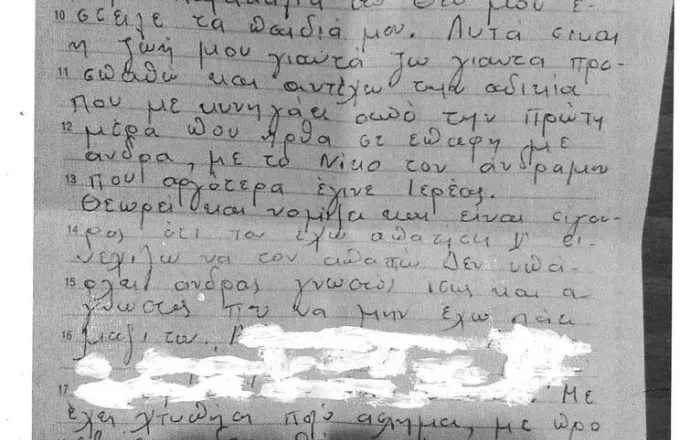 10 στειλε τα παιδιά μου. Αυτά ειναι
η ζωή μου γιαυτά ζω γιαυτα προ-
11 σπαθω και αντέχω την αδικία
που με κυνηγάει από την πρώτη
12 μέρα που ήρθα σε επαφη με
άνδρα, με το Νικο τον άνδραμου
13 που αργότερα έγινε Ιερέας.
Θεωρεί και νομίζει και είναι σιγου-
14 ρος ότι τον έχω απατήσει
να τον απατω Δεν υπα-
15 ρχει άνδρας γνωστός ισως και α-
γνωστος που να μην έχω πάει
16 μαζί του.
17 Με
έχει χτυπήσει πολύ ασχημα, με προ